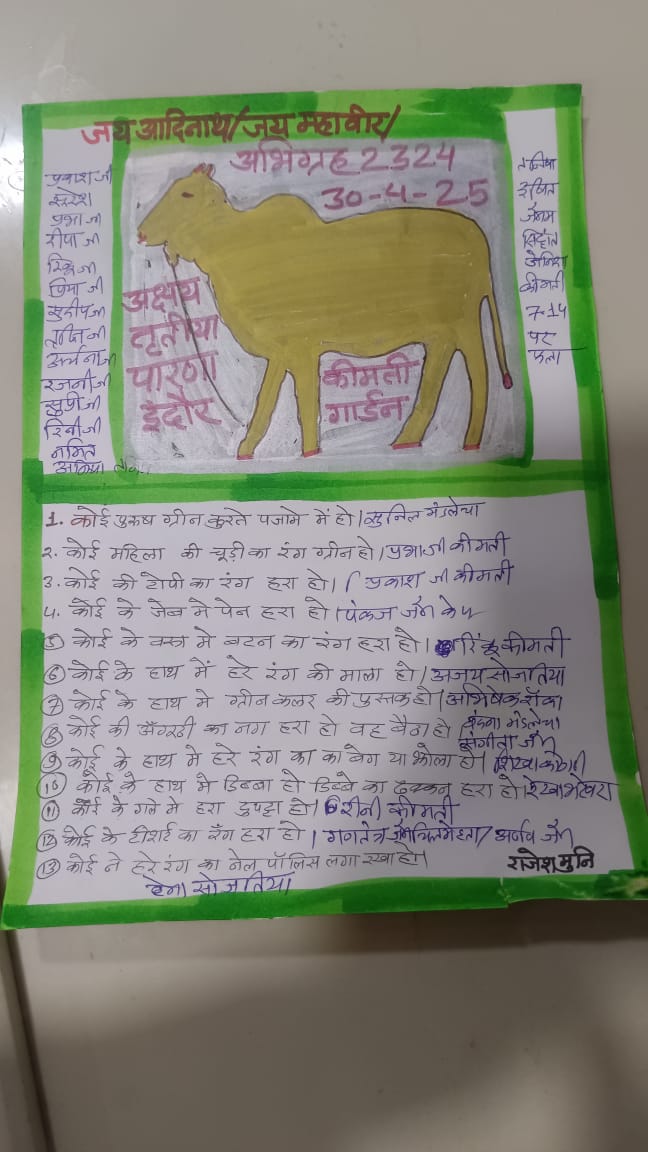 जय आदिनाथ/जय महावीर/
अभिग्रह 2324
30-4-25
अक्षय
तृतीया
पारणा
इंदौर
कीमती
गार्डन
प्रकाश जी
सुरेश
प्रभा जी
दीपा जी
रिंकू जी
प्रिया जी
सुदीप जी
तृप्ति जी
अर्चना जी
रजनी जी
रिनी जी
नमित
जैनम
सिद्धांत
कीमती
7-14
पर
फला
1. कोई पुरुष ग्रीन कुरते पजामे में हो। सुनिल मंडलेचा
2. कोई महिला की चूड़ी का रंग ग्रीन हो। प्रभा जी कीमती
3. कोई की टोपी का रंग हरा हो। प्रकाश जी कीमती
4. कोई के जेब मे पेन हरा हो। पंकज जैन
5 कोई के वस्त्र मे बटन का रंग हरा हो। रिंकू कीमती
6 कोई के हाथ में हरे रंग की माला हो/ अजय सोजतिया
7 कोई के हाथ मे ग्रीन कलर की पुस्तक हो। अभिषेक रॉका
8 कोई की अँगूठी का नग हरा हो वह बैठा हो वंदना मंडलेचा
संगीता जैन
9 कोई के हाथ मे हरे रंग का का बेग या झोला हो। शिखा कोठारी
10 कोई के हाथ मे डिब्बा हो डिब्बे का ढक्कन हरा हो। रेखा
11 कोई के गले मे हरा दुपट्टा हो। रीनी कीमती
12 कोई के टीशर्ट का रँग हरा हो। अर्णव जैन
13 कोई ने हरे रंग का नेल पॉलिस लगा रखा हो।
हेमा सोजतिया
राजेश मुनि